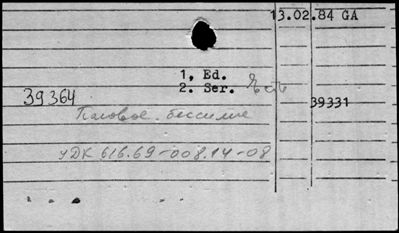 13.02.84 GA
1, Ed.
2. Ser.
39364
39331
Половое бессилие
УДК 616.69-008.14-08